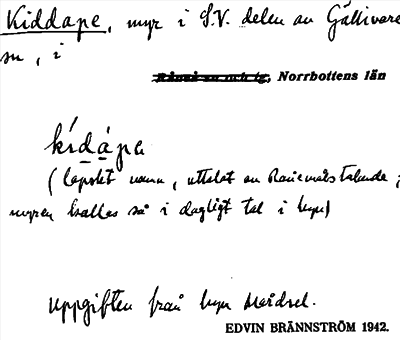 Kiddape, myr i S.V. delen av Gällivare
sn, i
Råneå sn och tg, Norrbottens län
kídápa
(lapskt namn, uttalat av Rånemålstalande;
myren kallas så i dagligt tal i byn)
Uppgiften från byn
EDVIN BRÄNNSTRÖM 1942.